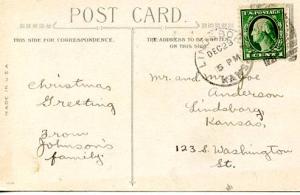 POST CARD.
THIS SIDE FOR CORRESPONDENCE.
THE ADDRESS TO BE WRITTEN ON THIS SIDE.
MADE IN U.S.A.
Christmas
Greeting
From
Johnson's
family.
DEC 23
5 PM
KANS
U.S. POSTAGE
1 CENT 1
Mr. and Mrs.
Anderson
Lindsborg
Kansas,
123 S. Washington
St.